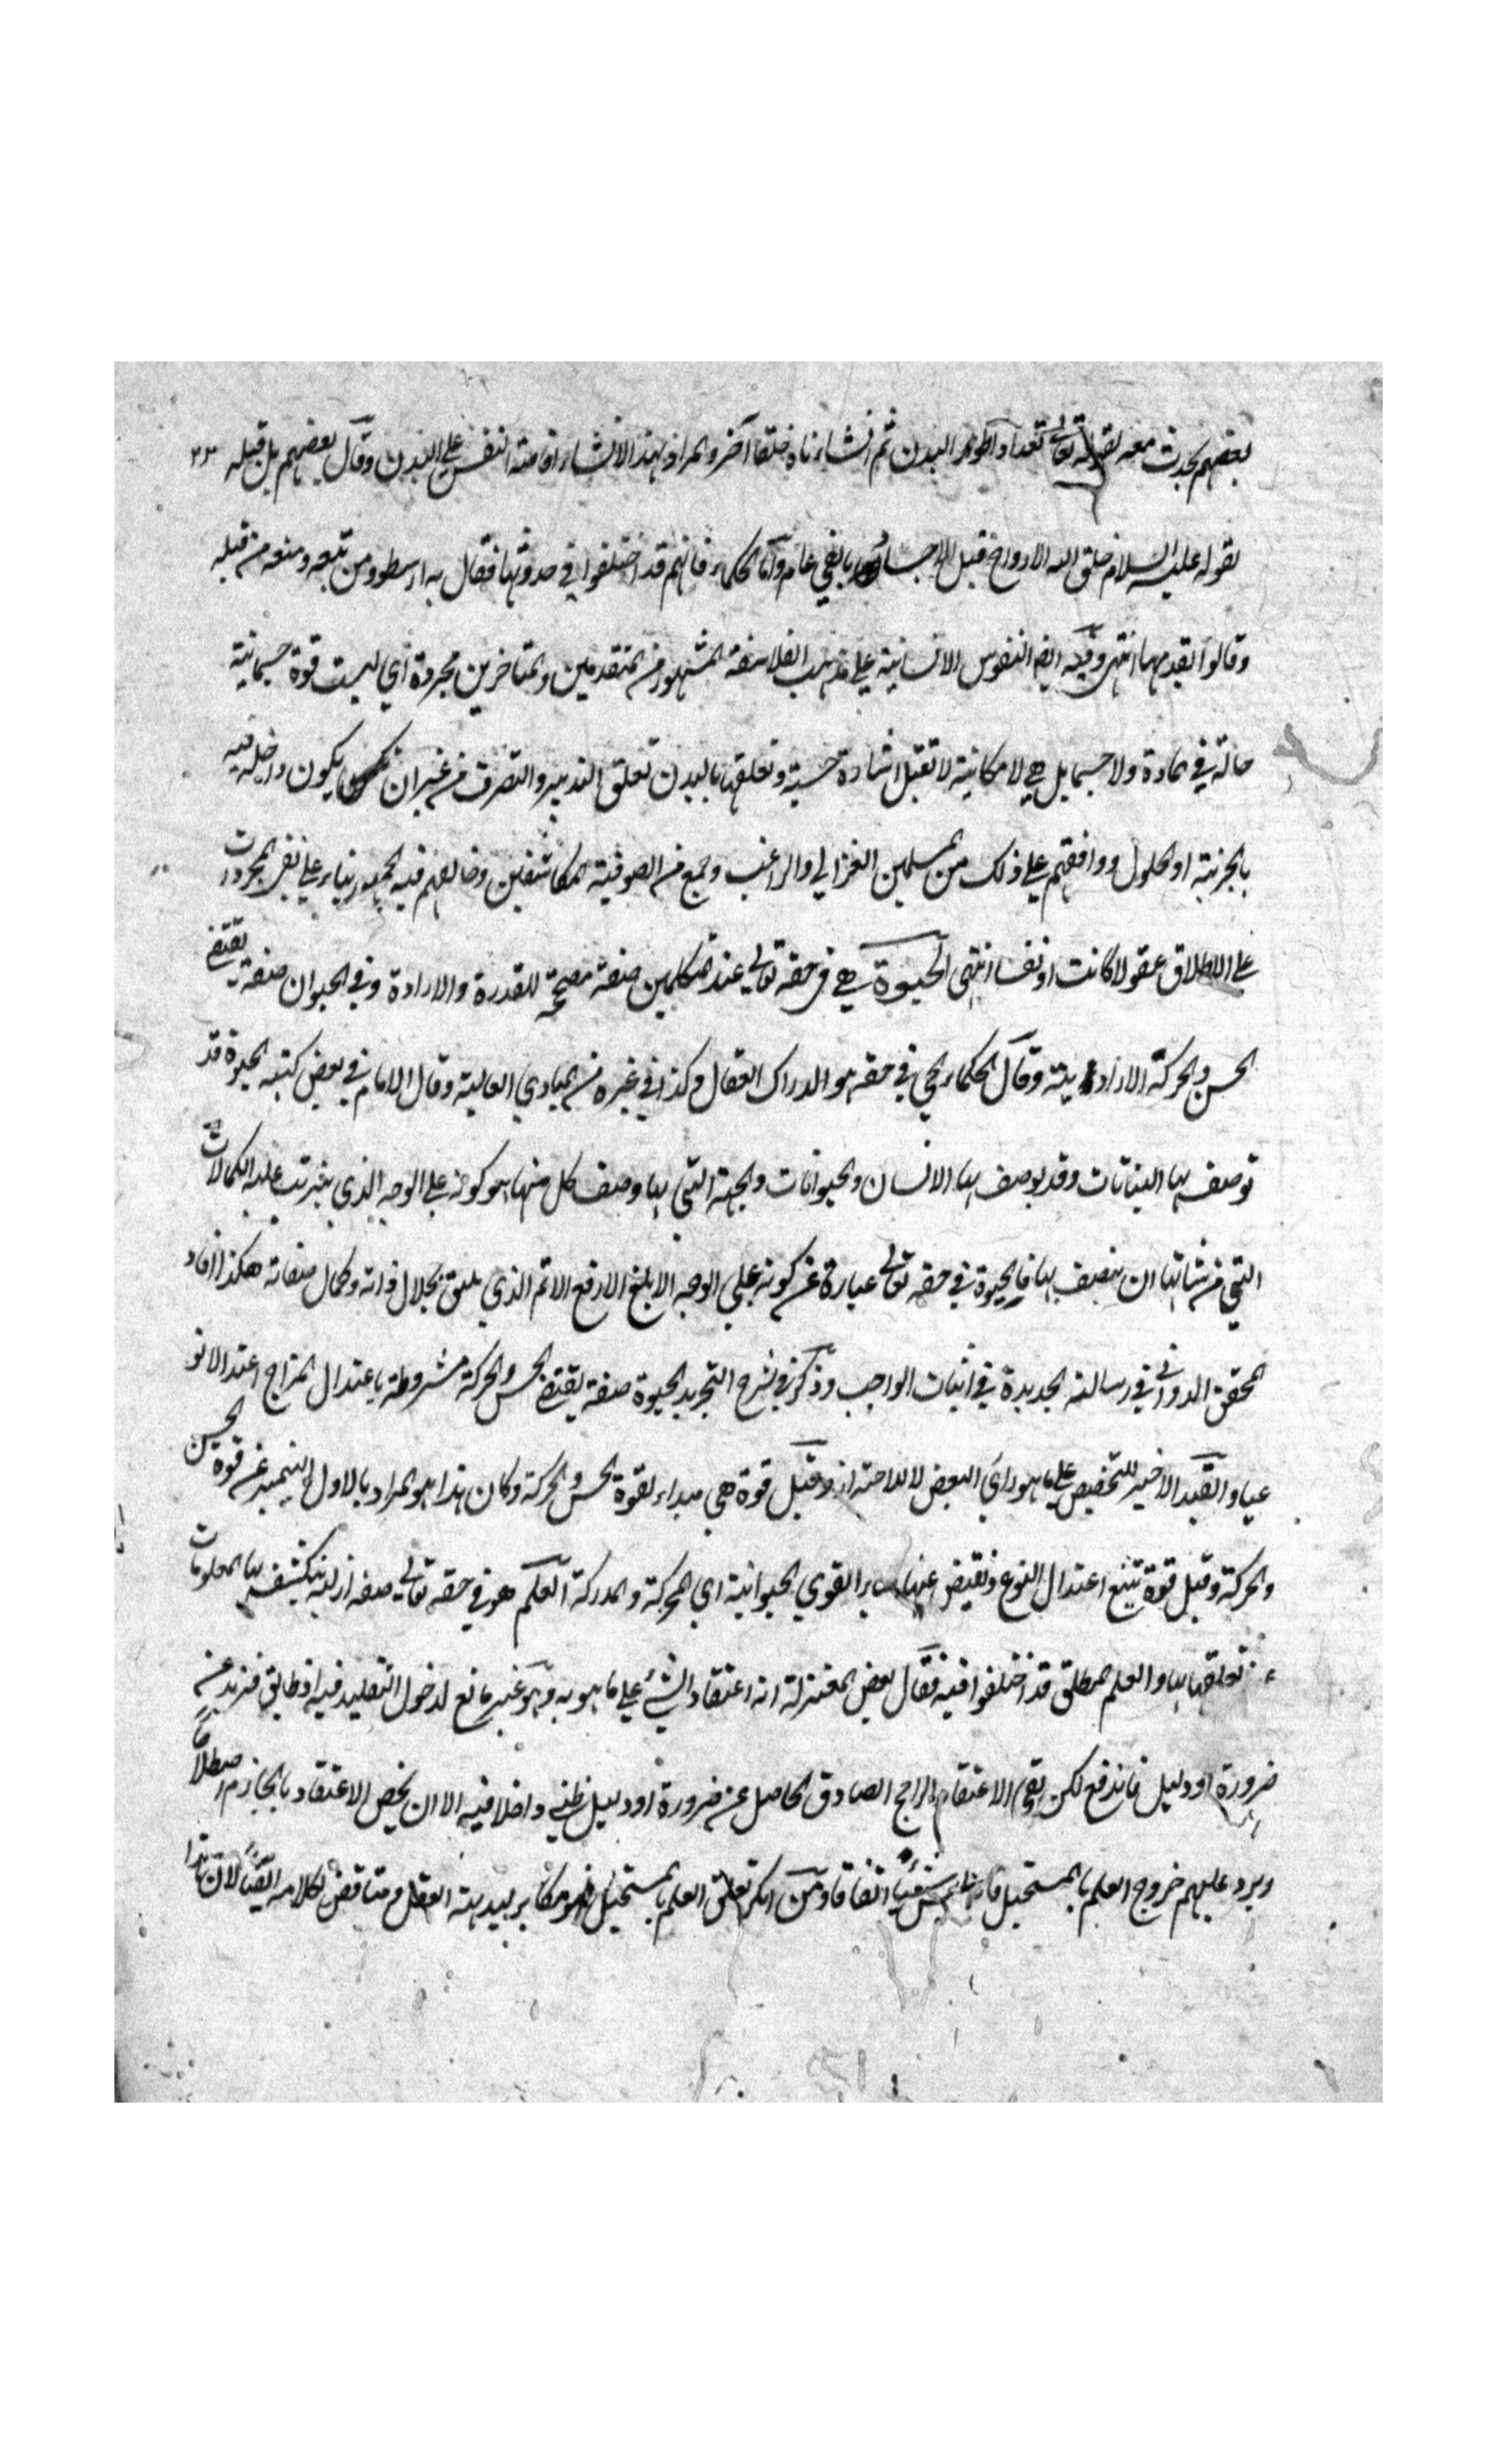 بعضهم يحدث معه لقوله تعالى تعداد اطوار البدن ثم انشأناه خلقا آخر والمراد بهذا الانشاء افاضة النفس على البدن وقال بعضهم بل قبله ٣٣
لقوله عليه السلام خلق الله الارواح قبل الاجساد بالفي عام وأما الحكماء فانهم قد اختلفوا في حدوثها فقال به ارسطو ومن تبعه ومنعه من قبله
وقالوا بقدمها انتهى وفيه ايضا النفوس الانسانية على مذهب الفلاسفة المشهور من المتقدمين والمتأخرين مجردة أي ليست قوة جسمانية
حالة في المادة ولا جسما بل هي لا مكانية لا تقبل اشارة حسية وتعلقها بالبدن تعلق التدبير والتصرف من غير ان يكون داخلة فيه
بالجزئية او الحلول ووافقهم على ذلك من المسلمين الغزالي والراغب وجمع من الصوفية المكاشفين وخالفهم فيه الجمهور بناء على نفي المجردات
على الاطلاق عقولا كانت او نفسا انتهى الحيوة هي في حقه تعالى عند المتكلمين صفة مصححة للقدرة والارادة وفي الحيوان صفة يقتضي
الحس والحركة الارادية وقال الحكماء الحي في حقه هو الدراك الفعال وكذا في غيره من المبادي العالية وقال الامام في بعض كتبه الحيوة قد
توصف بها النباتات وقد يوصف بها الانسان والحيوانات والجهة التي بها وصف كل منها هو كونه على الوجه الذي يترتب عليه الكمالات
التي من شانها ان يتصف بها فالحيوة في حقه تعالى عبارة عن كونه على الوجه الابلغ الارفع الاتم الذي يليق بجلال ذاته وكمال صفاته هكذا افاد
المحقق الدواني في رسالته الجديدة في اثبات الواجب وذكر في شرح التجريد الحيوة صفة يقتضي الحس والحركة مشروطة باعتدال المزاج اعتدالا نو
عيا والقيد الاخير للتخصيص على ما هو رأي البعض لا للاحتراز وقيل قوة هي مبداء لقوة الحس والحركة وكان هذا هو المراد بالاول ليتميز عن قوة الحس
والحركة وقيل قوة تتبع اعتدال النوع وتفيض عنها سائر القوي الحيوانية اي المحركة والمدركة العلم هو في حقه تعالى صفة ازلية ينكشف بها المعلومات
عند تعلقها بها والعلم المطلق قد اختلفوا فيه فقال بعض المعتزلة انه اعتقاد الشيء على ما هو به وهو غير مانع لدخول التقليد فيه اذ طابق فزيد عن
ضرورة او دليل فاندفع لكن بقي الاعتقاد الراجح الصادق الحاصل عن ضرورة او دليل ظني داخلا فيه الا ان يخص الاعتقاد بالجازم اصطلاحا
ويرد عليهم خروج العلم بالمستحيل فانه ليس شيئا اتفاقا ومن انكر تعلق العلم بالمستحيل فهو مكابر لبديهة العقل ومناقض لكلامه ايضا لان هذا